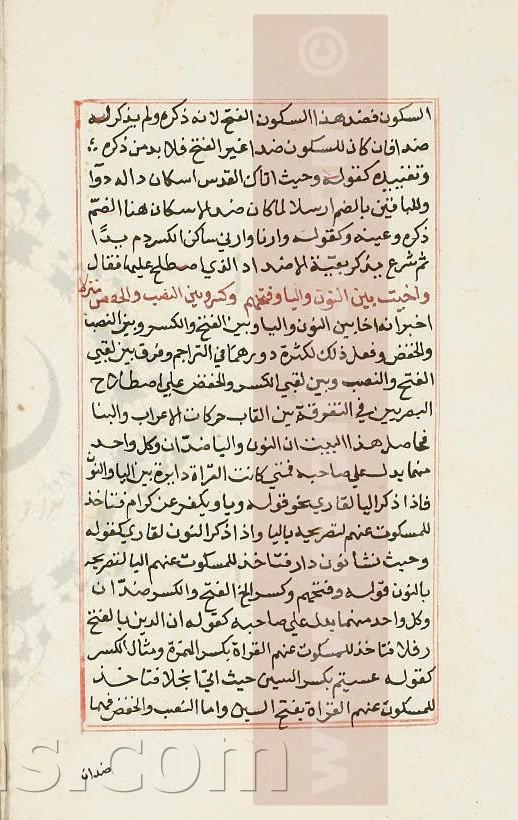 السكون فضد هذا السكون الفتح لانه ذكره ولم يذكر له
ضدا فان كان للسكون ضدا غير الفتح فلا بد من ذكره
وتقييده كقوله وحيث اتاك القدس اسكان داله دوآ
وللباقين بالضم ارسلا لما كان ضد الاسكان هنا الضم
ذكره وعينه وكقوله وارنا وارني ساكن الكسر دم يدًا
ثم شرع يذكر بقية الاضداد الذي اصطلح عليها فقال
واخيت بين النون واليا وفتحهم وكسر وبين النصب والخفض منزلا
اخبر انه اخا بين النون واليا وبين الفتح والكسر وبين النصب
والخفض وفعل ذلك لكثرة دورهما في التراجم وفرق بين لقبي
الفتح والنصب وبين لقبي الكسر والخفض علي اصطلاح
البصريين في التفرقة بين القاب حركات الاعراب والبنا
فحاصل هذا البيت ان النون واليا ضدان وكل واحد
منهما يدل علي صاحبه فمتي كانت القراة دايرة بين اليا والنون
فاذا ذكر اليا لقاري نحو قوله ويا ويكفر عن كرام فتاخذ
للمسكوت عنهم لتصريحه باليا واذا ذكر النون لقاري كقوله
وحيث نشا نون دار فتاخذ للمسكوت عنهم اليا لتصريحه
بالنون قوله وفتحهم وكسر الخ الفتح والكسر ضدان
وكل واحد منهما يدل علي صاحبه كقوله ان الدين بالفتح
رفلا فتاخذ للمسكوت عنهم القراة بكسر الهمزة ومثال الكسر
كقوله عسيتم بكسر السين حيث اتي انجلا فتاخذ
للمسكوت عنهم القراة بفتح السين واما النصب والخفض فهما
ضدان
ns.com
© www